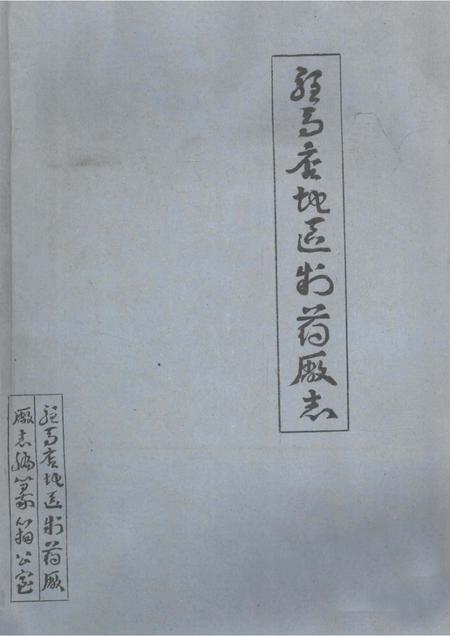 驻马店地区制药厂志
驻马店地区制药厂
厂志编纂办公室